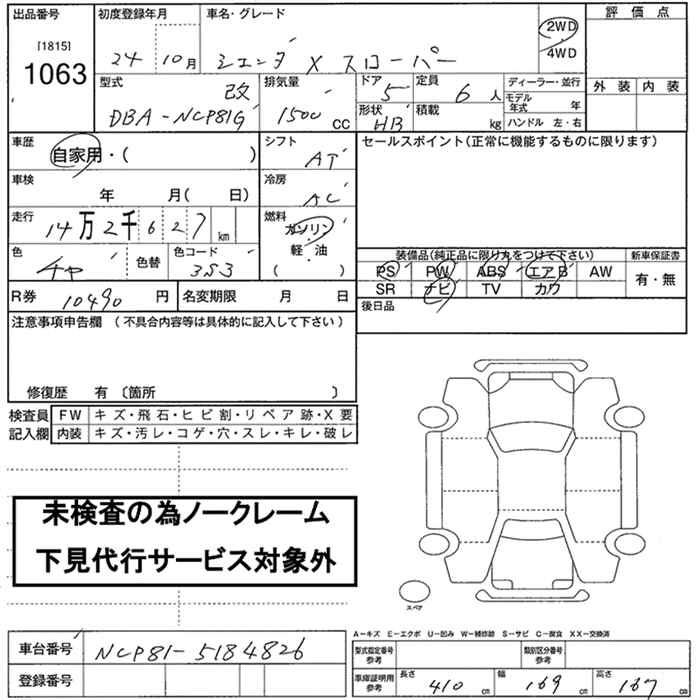 出品番号 初度登録年月 車名・グレード 評価点
[1815]
1063
24年10月 シエンタ X スローパー 2WD
4WD
型式 改 排気量 ドア 定員 ディーラー・並行 外装 内装
DBA-NCP81G 1500 CC 5 6 人 モデル年式 年
形状 HB 積載 kg ハンドル 左・右
車歴 自家用・( ) シフト AT セールスポイント(正常に機能するものに限ります)
車検 年 月( 日) 冷房 AC
走行 14万2千627 km 燃料 ガソリン・軽油 ( )
色 チャ 色替 色コード 3S3 装備品(純正品に限り丸をつけて下さい) 新車保証書
PS PW ABS エアB AW 有・無
SR ナビ TV カワ
R券 10490 円 名変期限 月 日 後日品
注意事項申告欄 (不具合内容等は具体的に記入して下さい)
修復歴 有 〔箇所 〕
検査員 FW キズ・飛石・ヒビ割・リペア跡・X要
記入欄 内装 キズ・汚レ・コゲ・穴・スレ・キレ・破レ
未検査の為ノークレーム
下見代行サービス対象外
スペア
A-キズ E-エクボ U-凹み W-補修跡 S-サビ C-腐食 XX-交換済
車台番号 NCP81-5184826 型式指定番号 参考 類別区分番号 参考
登録番号 車庫証明用 参考 長さ 410 cm 幅 169 cm 高さ 167 cm